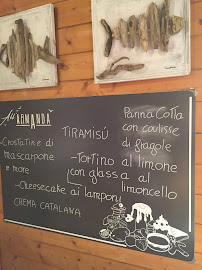 ARMANDÀ
TIRAMISÚ
- CROSTATINE di
MASCARPONE
e more
- CHEESECAKE ai lamponi
CREMA CATALANA
PANNA COTTA
con coulisse
di fragole
- TORTINO al limone
con glassa al
limoncello